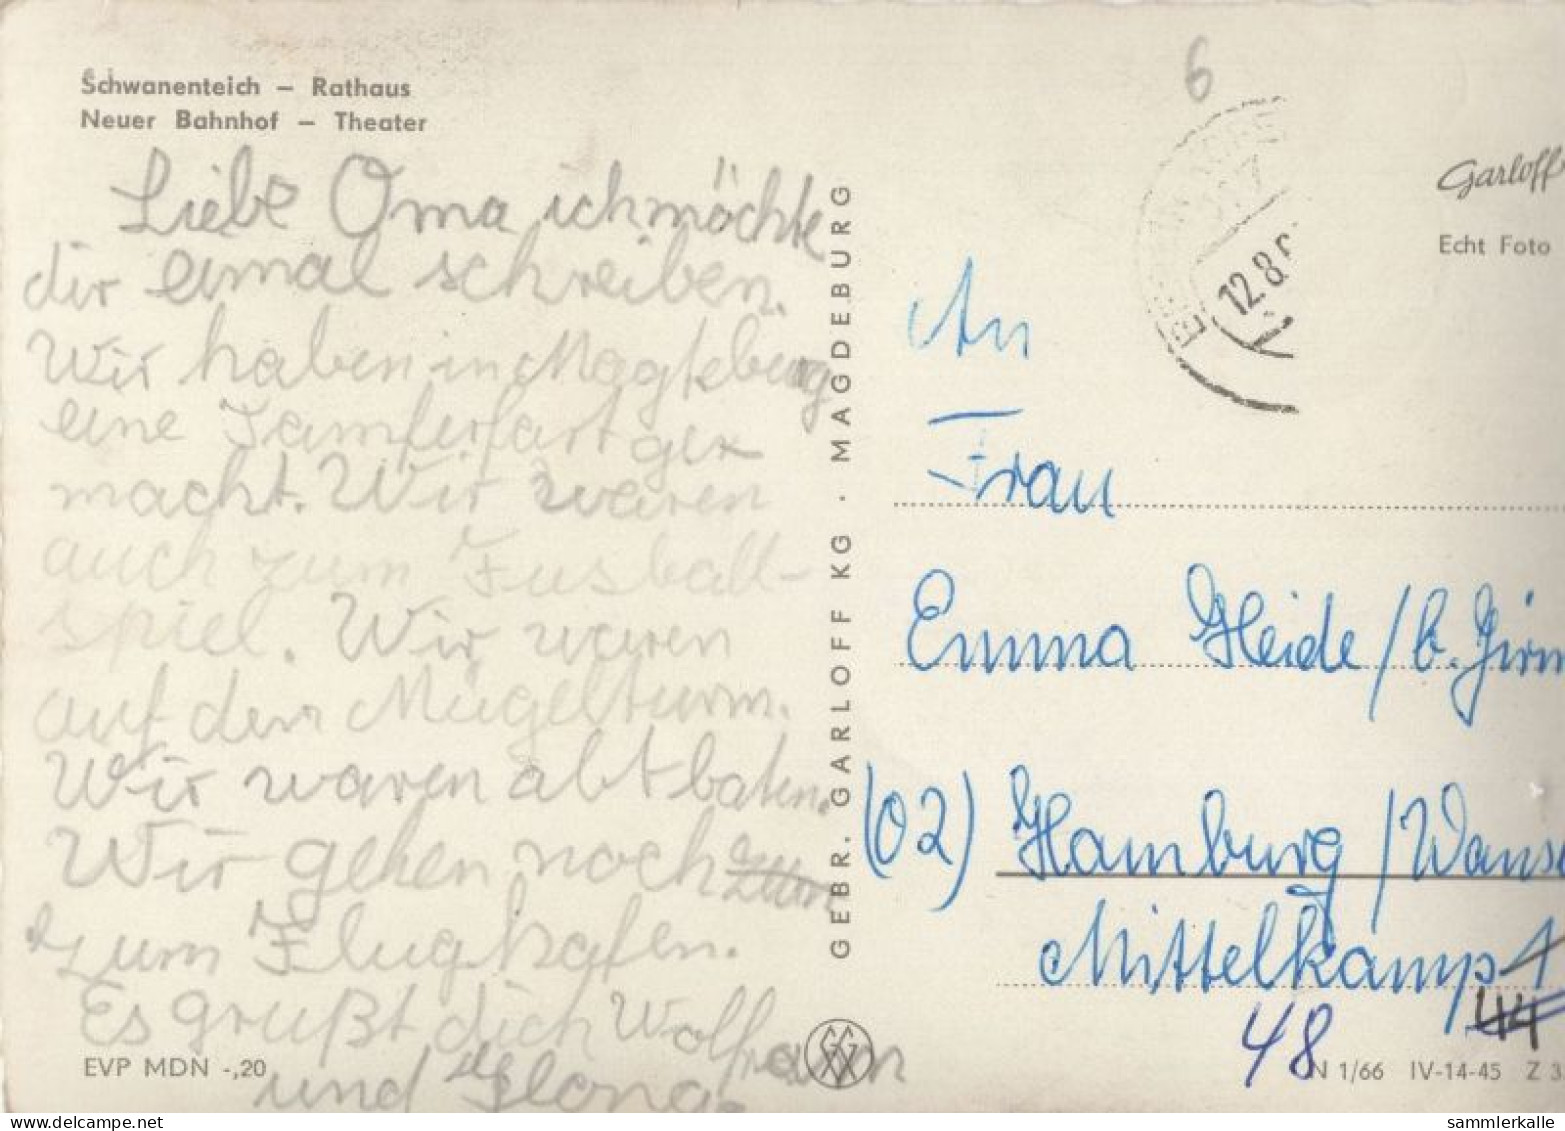 Schwanenteich – Rathaus
Neuer Bahnhof – Theater
Liebe Oma ich möchte
dir eimal schreiben.
Wir haben in Magteburg
eine Tamferfart ger
macht. Wir waren
auch zum Fusball-
spiel. Wir waren
auf den Mügelturm.
Wir waren abt baten.
Wir gehen noch zum
zum Flughafen.
Es grußt dich Wolfram
und Ilona.
EVP MDN -,20
GEBR. GARLOFF KG · MAGDEBURG
6
12.8.6
Garloff
Echt Foto
An
Frau
Emma Heide / b. Jirm
(02) Hamburg / Wanse
Mittelkamp 1
44
48
N 1/66 IV-14-45 Z 3
sammlerkalle